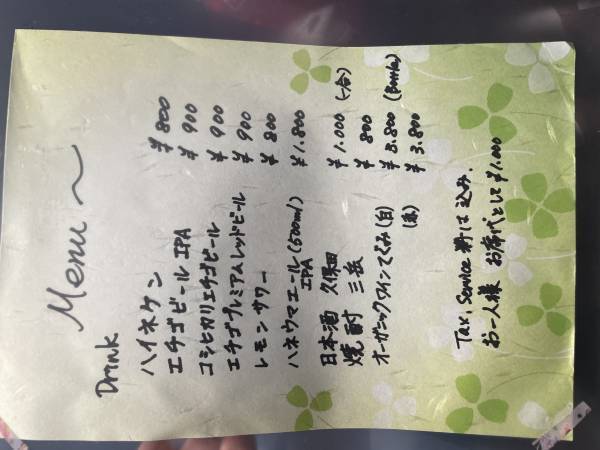 Menu ～
Drink
ハイネケン ¥800
エチゴビール IPA ¥900
コシヒカリエチゴビール ¥900
エチゴプレミアムレッドビール ¥900
レモンサワー ¥800
ハネウマエール(500ml) ¥1.800
IPA
日本酒 久保田 ¥1.000 (一合)
焼酎 三岳 ¥800
オーガニックワインてぐみ(白) ¥3.800 (Bottle)
(赤) ¥3.800
Tax, Service料は込み.
お一人様 お席代として¥1.000